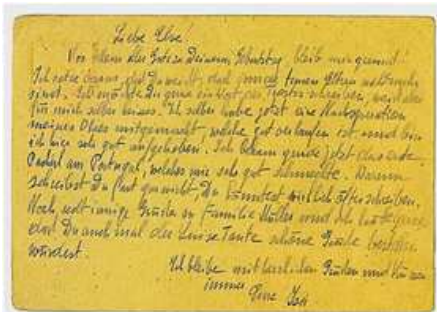 Liebe Else!
Vor allem alles Gute zu Deinem Geburtstag, bleib mir gesund!
Ich daraus, daß Du nicht, daß Eltern
sind. Ich möchte Dir gerne ein Wort des Trostes schreiben,
für mich selber keines. Ich selber habe jetzt eine Nachoperation
meines Ohres mitgemacht, welche gut verlaufen ist und bin
ich hier sehr gut aufgehoben. Ich bekam gerade jetzt das erste
Packerl aus Portugal, welches mir sehr gut schmeckte. Warum
schreibst Du fast gar nicht. Du könntest wirklich öfter schreiben.
Noch recht innige Grüße an Familie Müller und ich
daß Du auch mal der Luise Tante schöne Grüße bestellen
würdest.
Ich bleibe mit herzlichen Grüßen und Küssen
immer Deine